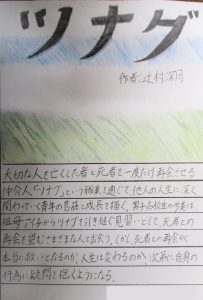 ツナグ
作者:辻村深月
大切な人を亡くした者と死者を一度だけ再会させる
仲介人「ツナグ」という稼業を通じて、他人の人生に深く
関わっていく青年の葛藤と成長を描く。男子高校生の歩美は
祖母アイ子からツナグを引き継ぐ見習いとして、死者との
再会を望むさまざまな人と出会う。しかし死者との再会が
本当に救いになるのか、人生は変わるのか、次第に自身の
行為に疑問を抱くようになる。